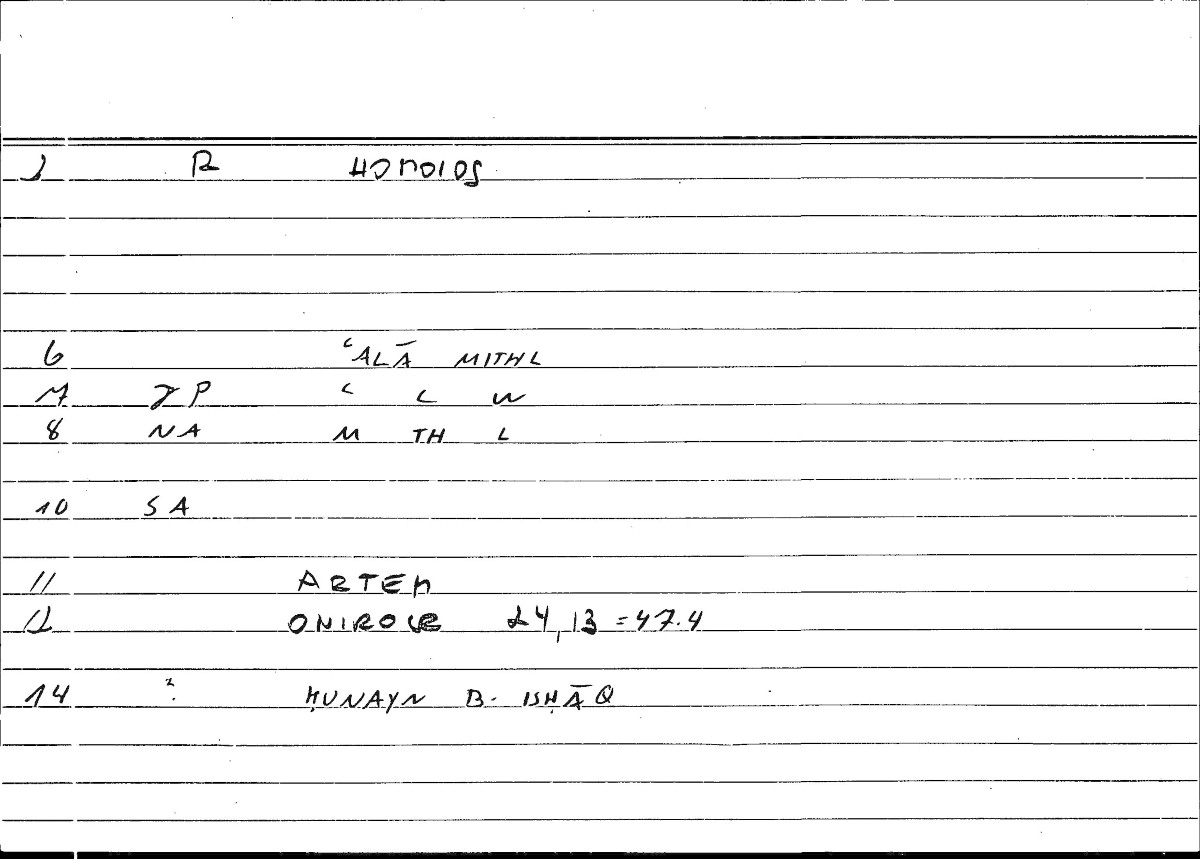 1 R HOMOIOS
6 ʿALĀ MITHL
7 γP ʿ L W
8 NA M TH L
10 SA
11 ARTEM
12 ONIROCR 24,13 = 47.4
14 ? ḤUNAYN B. ISḤĀQ